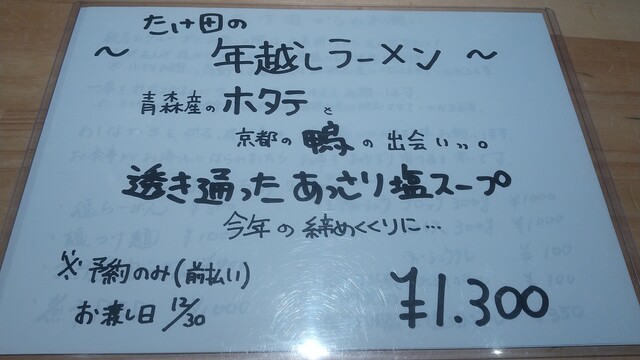 たけ田の
〜 年越しラーメン 〜
青森産のホタテと
京都の鴨の出会いッ。
透き通ったあっさり塩スープ
今年の締めくくりに…
※予約のみ(前払い)
お渡し日 12/30
¥1.300